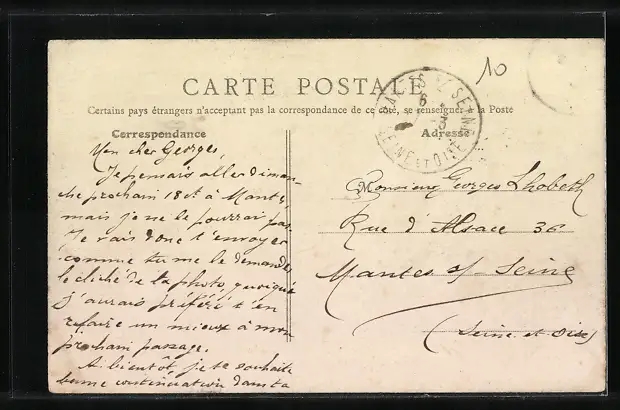 10
CARTE POSTALE
Certains pays étrangers n'acceptant pas la correspondance de ce côté, se renseigner à la Poste
Correspondance
Adresse
SEINE ET OISE
Mon cher Georges,
Je pensais aller diman-
che prochain 18 ct à Mantes,
mais je ne le pourrai pas.
Je vais donc t'envoyer
comme tu me le demandes,
le cliché de la photo, quoique
j'aurais préféré t'en
refaire un mieux à mon
prochain passage.
A bientôt, je te souhaite
bonne continuation dans ta
Monsieur Georges Lhobeth
Rue d'Alsace 36
Mantes s/ Seine
(Seine et Oise)